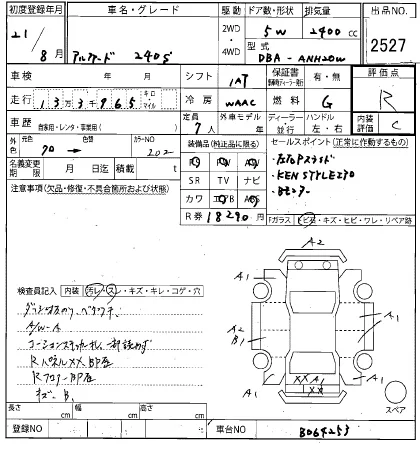 初度登録年月
車名・グレード
駆動
ドア数・形状
排気量
出品NO.
21
8月
アルファード 240S
2WD
・
4WD
5W
2400 cc
型式
DBA-ANH20W
2527
車検
年 月
シフト
IAT
保証書
有・無
評価点
走行
13万3千965
キロ
マイル
冷房
WAAC
燃料
G
R
車歴
自家用・レンタ・事業用( )
定員
7人
外車モデル
年
ディーラー
並行
ハンドル
左・右
内装評価
C
外色
元色
70
色替
カラーNO
202
装備品(純正品に限る)
セールスポイント(正常に作動するもの)
名義変更期限
月 日迄
積載
t
PS PW
SR TV ナビ
カワ エアB ABS
・左右Pスライド
・KENSTYLEエアロ
・Bモニター
注意事項(欠品・修復・不具合箇所および状態)
R券
18290円
Fガラス
トビ石・キズ・ヒビ・ワレ・リペア跡
検査員記入
内装
汚レ・スレ・キズ・キレ・コゲ・穴
A/W-A
RパネルXX、
Rフロアー
キズ、B、
A2
A1
A1
A2
B1
A1
XXA1
XX
A1
A1
スペア
長さ cm
幅 cm
高さ cm
登録NO
車台NO
8064253